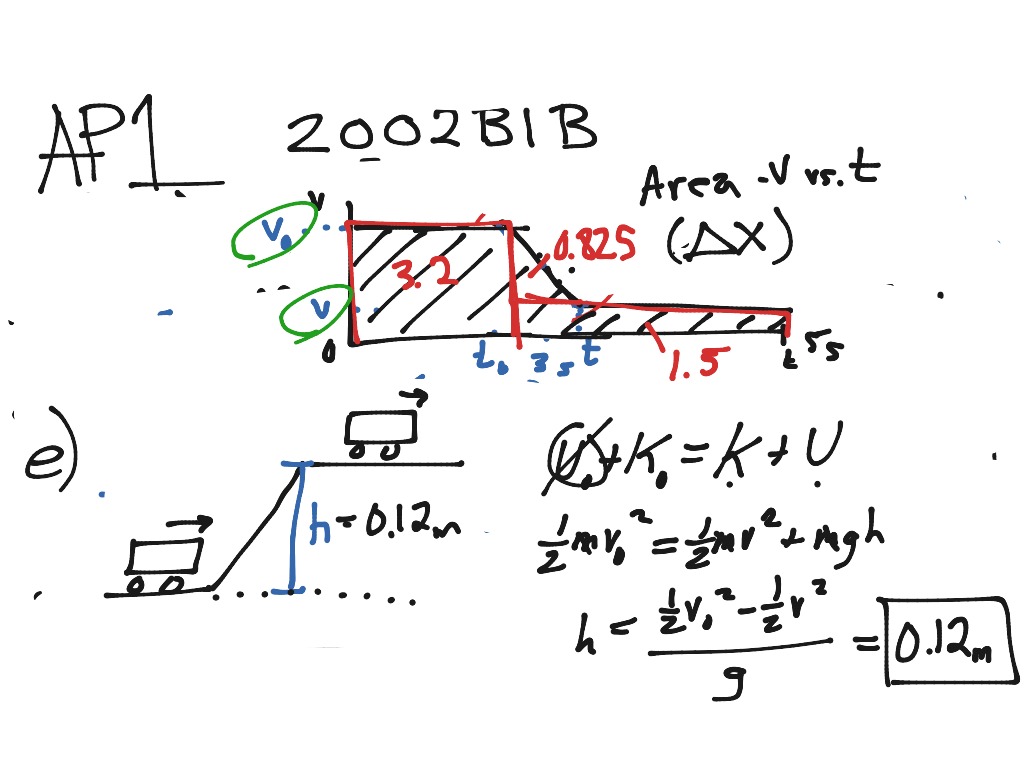 AP1 2002B1B
Area - V vs. t
(ΔX)
V
V₀
3.2
0.825
V
0
t₀ 3s t
1.5
t 5s
e)
h = 0.12m
U₀ + K₀ = K + U
½mv₀² = ½mv² + mgh
h = (½v₀² - ½v²)/g = 0.12m